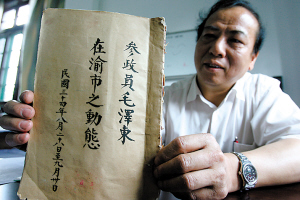 參政員毛澤東
在渝市之動態
民國三十四年八月二十八日至九月廿日